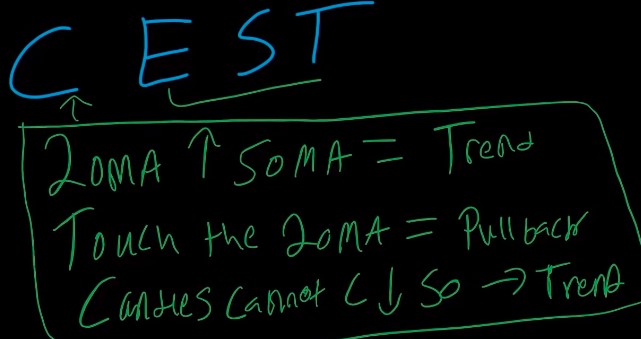 C E S T
20MA ↑ 50MA = Trend
Touch the 20MA = Pullback
Candles Cannot C ↓ 50 → Trend